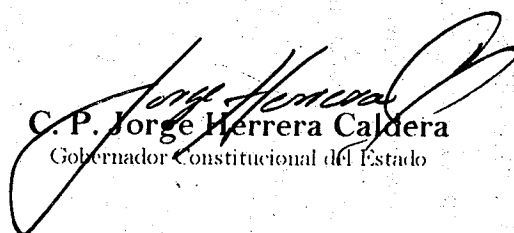 Jorge Herrera C
C. P. Jorge Herrera Caldera
Gobernador Constitucional del Estado